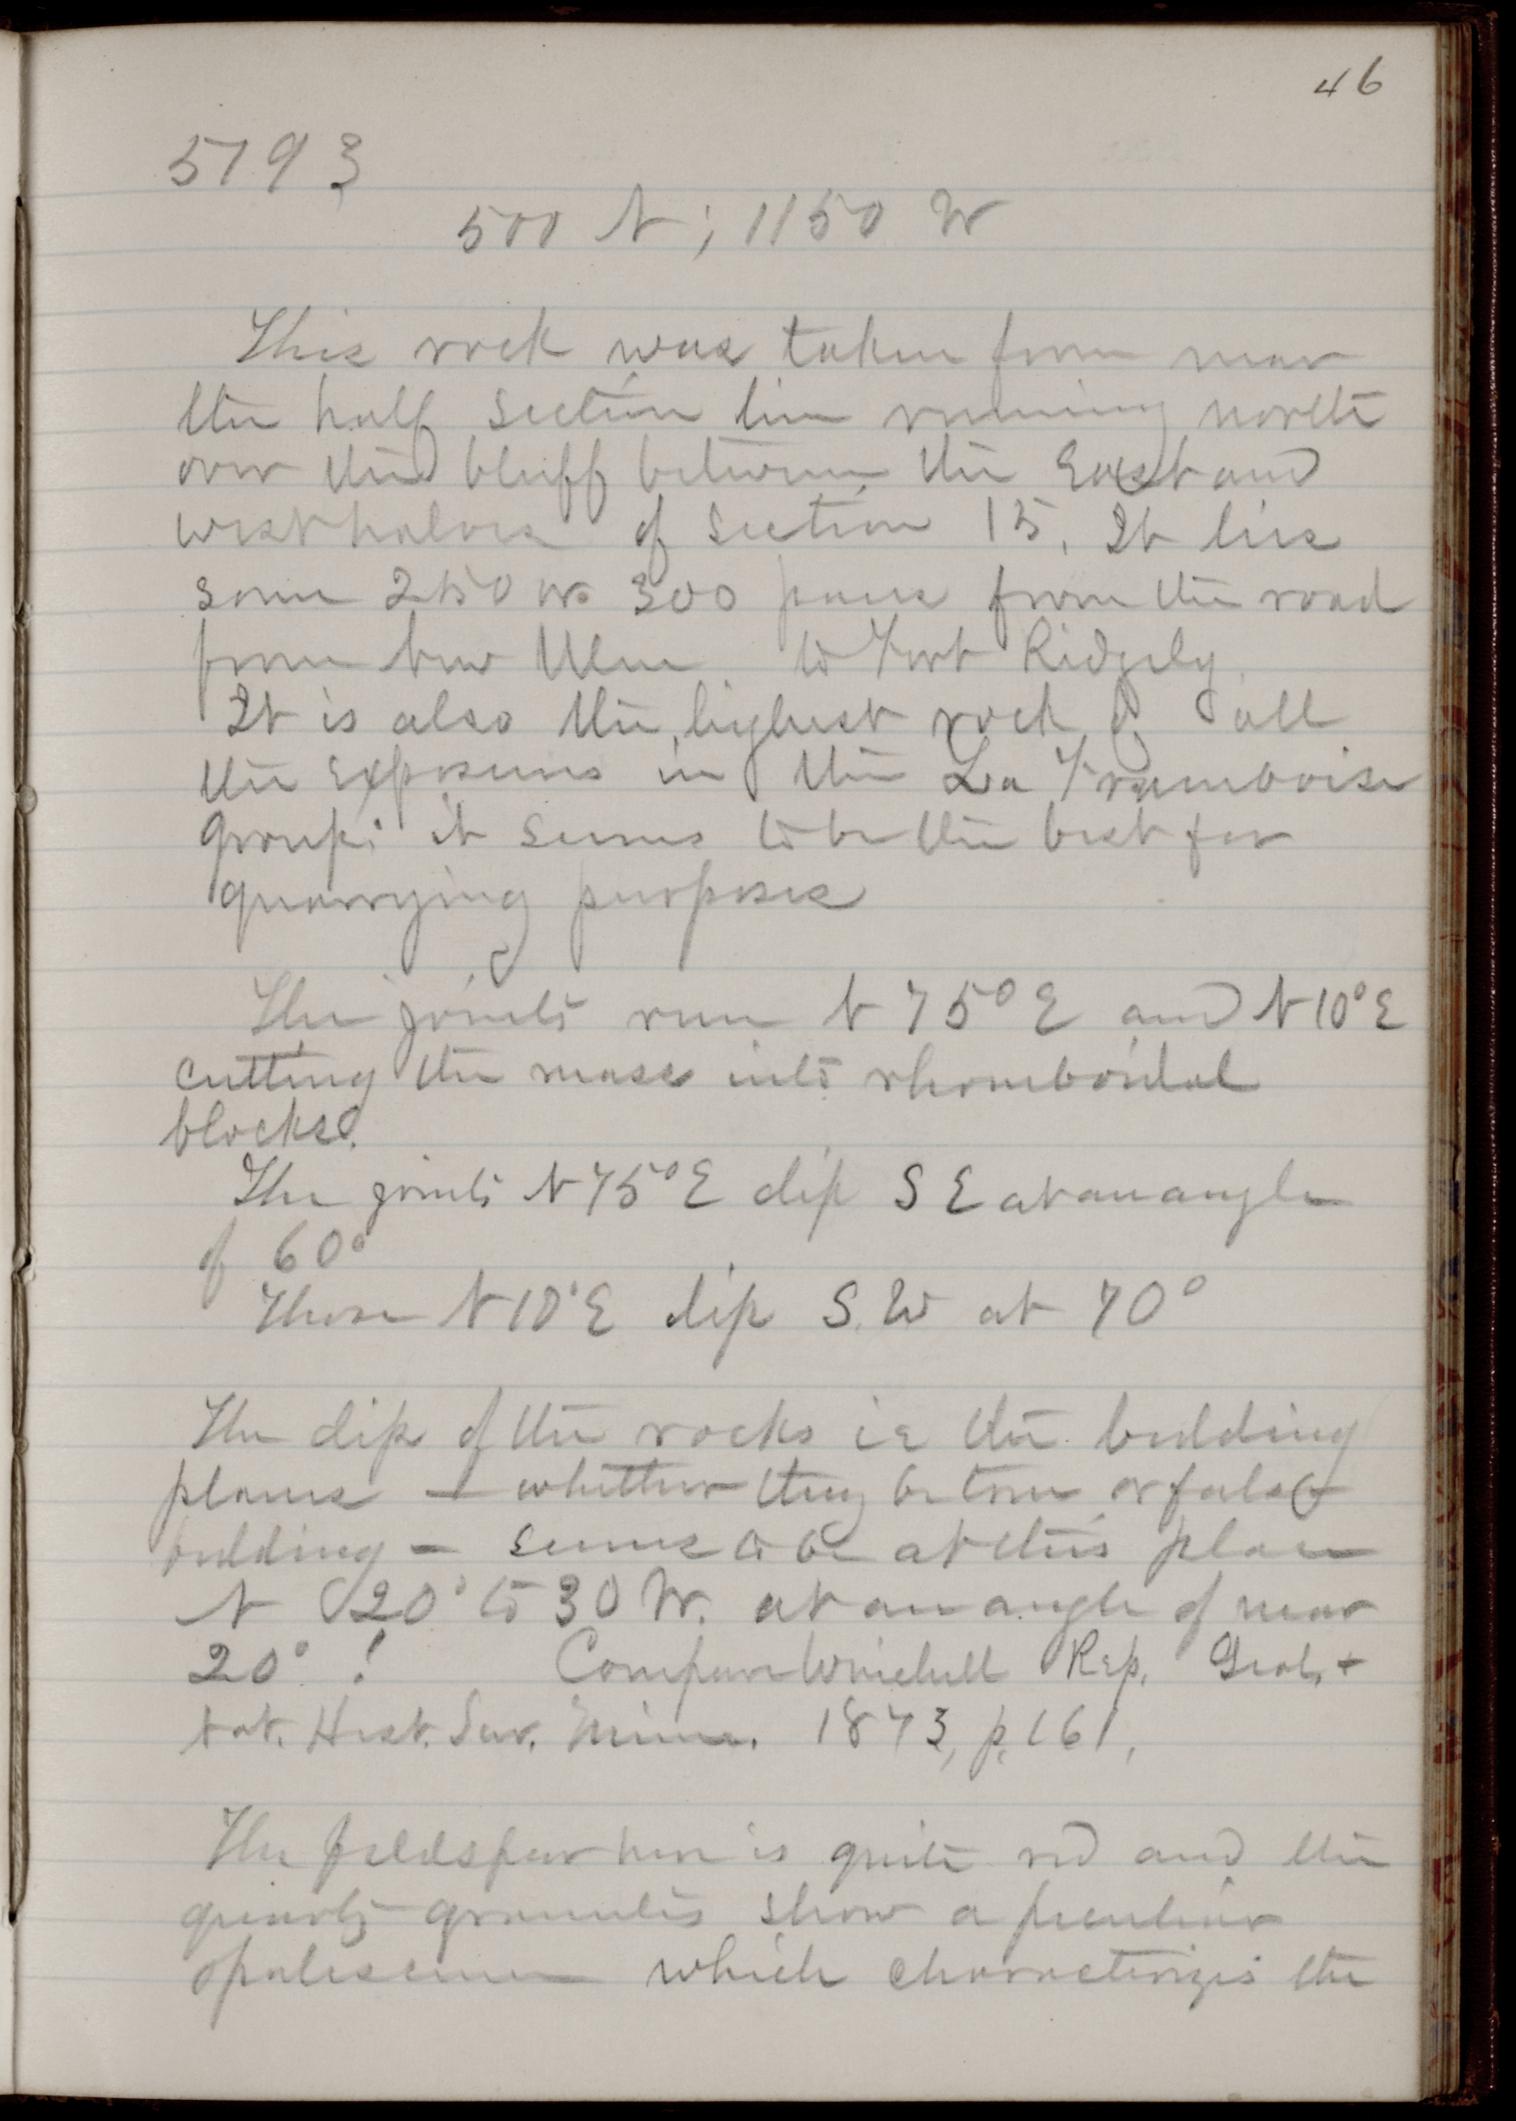 46
5193
500 N; 1150 W
This rock was taken from near
the half section line running north
over the bluff between the East and
west halves of section 15. It lies
some 250 or 300 paces from the road
from New Ulm to Fort Ridgely.
It is also the highest rock of all
the exposures in the La Framboise
group: it seems to be the best for
quarrying purposes
The joints run N 75° E and N 10° E
cutting the mass into rhomboidal
blocks.
The joints N 75° E dip S E at an angle
of 60°
Those N 10° E dip S. W at 70°
The dip of the rocks i e the bedding
planes — whether they be true or false
bedding — seems to be at this place
N 20° to 30 W. at an angle of near
20° ! Compare Winchell Rep. Geol. +
Nat. Hist. Sur. Minn. 1873, p. 161.
The feldspar here is quite red and the
quartz granules show a peculiar
opalescence which characterizes the